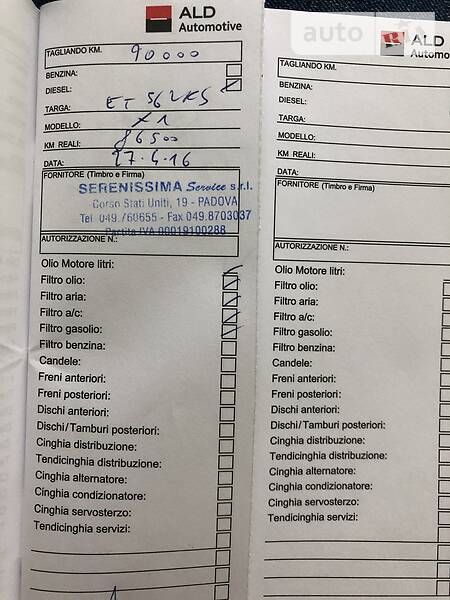 ALD
Automotive
TAGLIANDO KM. 90000
BENZINA:
DIESEL:
TARGA: ET 562KS
MODELLO: X1
KM REALI: 86500
DATA: 27.4.16
FORNITORE (Timbro e Firma)
SERENISSIMA Service s.r.l.
Corso Stati Uniti, 19 - PADOVA
Tel. 049.760655 - Fax 049.8703037
Partita IVA 00019100288
AUTORIZZAZIONE N.:
Olio Motore litri:
Filtro olio:
Filtro aria:
Filtro a/c:
Filtro gasolio:
Filtro benzina:
Candele:
Freni anteriori:
Freni posteriori:
Dischi anteriori:
Dischi/Tamburi posteriori:
Cinghia distribuzione:
Tendicinghia distribuzione:
Cinghia alternatore:
Cinghia condizionatore:
Cinghia servosterzo:
Tendicinghia servizi:
auto
ALD
Automo
TAGLIANDO KM.
BENZINA:
DIESEL:
TARGA:
MODELLO:
KM REALI:
DATA:
FORNITORE (Timbro e Firma)
AUTORIZZAZIONE N.:
Olio Motore litri:
Filtro olio:
Filtro aria:
Filtro a/c:
Filtro gasolio:
Filtro benzina:
Candele:
Freni anteriori:
Freni posteriori:
Dischi anteriori:
Dischi/Tamburi posteriori:
Cinghia distribuzione:
Tendicinghia distribuzione:
Cinghia alternatore:
Cinghia condizionatore:
Cinghia servosterzo:
Tendicinghia servizi: